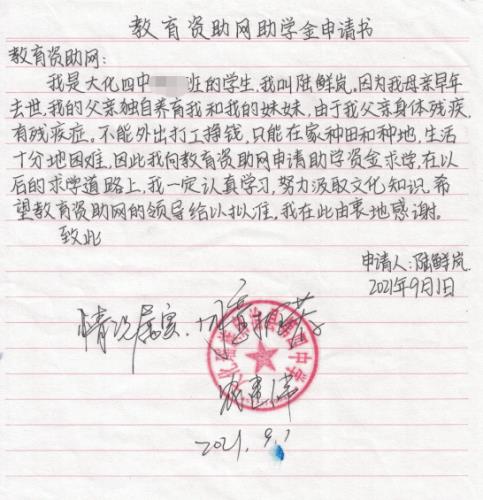 教育资助网助学金申请书
教育资助网:
我是大化四中 班的学生,我叫陆鲜岚,因为我母亲早年
去世,我的父亲独自养育我和我的妹妹,由于我父亲身体残疾,
有残疾症。不能外出打工挣钱,只能在家种田和种地,生活
十分地困难,因此我向教育资助网申请助学资金求学,在以
后的求学道路上,我一定认真学习,努力汲取文化知识,希
望教育资助网的领导给以拟准,我在此由衷地感谢。
致此
申请人:陆鲜岚.
2021年9月1日
情况属实.同意推荐
2021.9.1